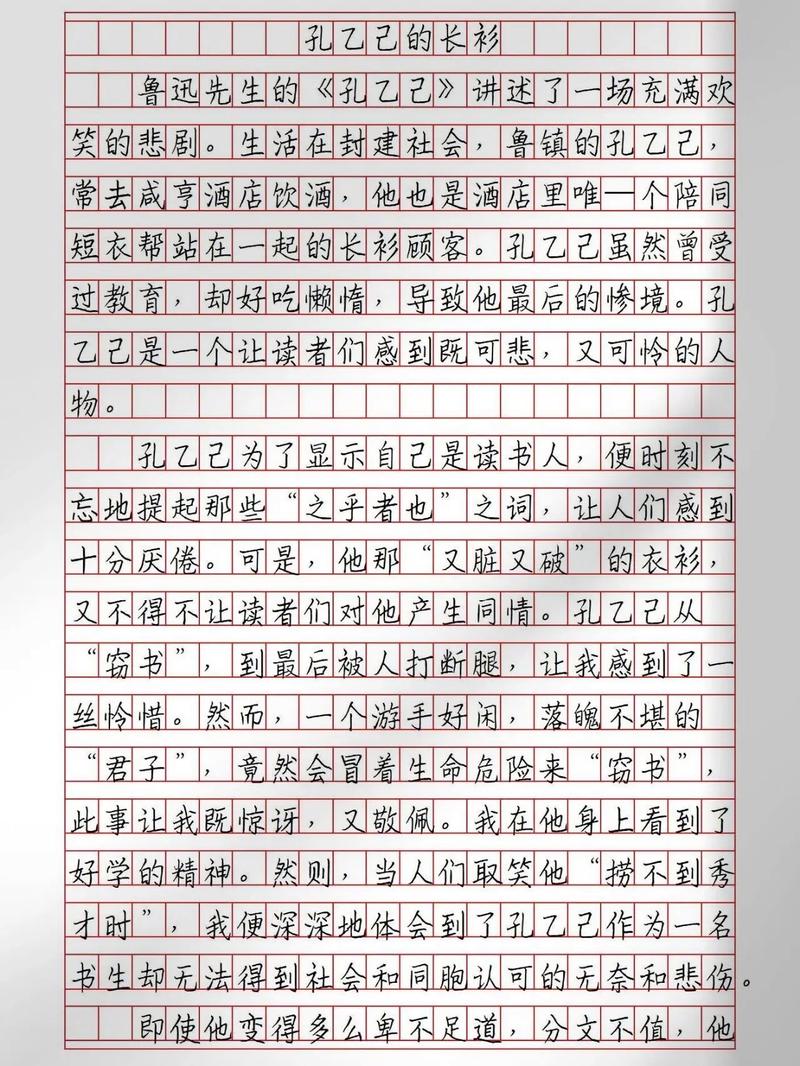 孔乙己的长衫
鲁迅先生的《孔乙己》讲述了一场充满欢
笑的悲剧。生活在封建社会，鲁镇的孔乙己，
常去咸亨酒店饮酒，他也是酒店里唯一个陪同
短衣帮站在一起的长衫顾客。孔乙己虽然曾受
过教育，却好吃懒惰，导致他最后的惨境。孔
乙己是一个让读者们感到既可悲，又可怜的人
物。
孔乙己为了显示自己是读书人，便时刻不
忘地提起那些“之乎者也”之词，让人们感到
十分厌倦。可是，他那“又脏又破”的衣衫，
又不得不让读者们对他产生同情。孔乙己从
“窃书”，到最后被人打断腿，让我感到了一
丝怜惜。然而，一个游手好闲，落魄不堪的
“君子”，竟然会冒着生命危险来“窃书”，
此事让我既惊讶，又敬佩。我在他身上看到了
好学的精神。然则，当人们取笑他“捞不到秀
才时”，我便深深地体会到了孔乙己作为一名
书生却无法得到社会和同胞认可的无奈和悲伤。
即使他变得多么卑不足道，分文不值，他